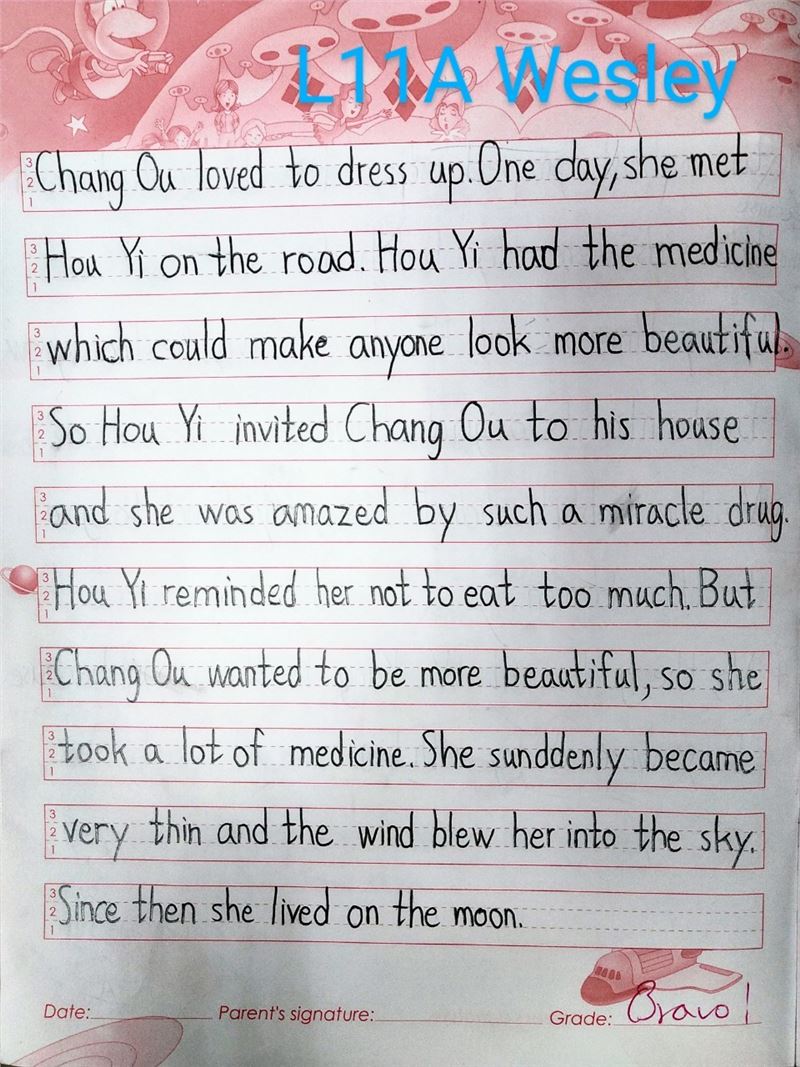 L11A Wesley
Chang Ou loved to dress up. One day, she met
Hou Yi on the road. Hou Yi had the medicine
which could make anyone look more beautiful.
So Hou Yi invited Chang Ou to his house
and she was amazed by such a miracle drug.
Hou Yi reminded her not to eat too much. But
Chang Ou wanted to be more beautiful, so she
took a lot of medicine. She sunddenly became
very thin and the wind blew her into the sky.
Since then she lived on the moon.
Date: Parent's signature: Grade: Bravo!